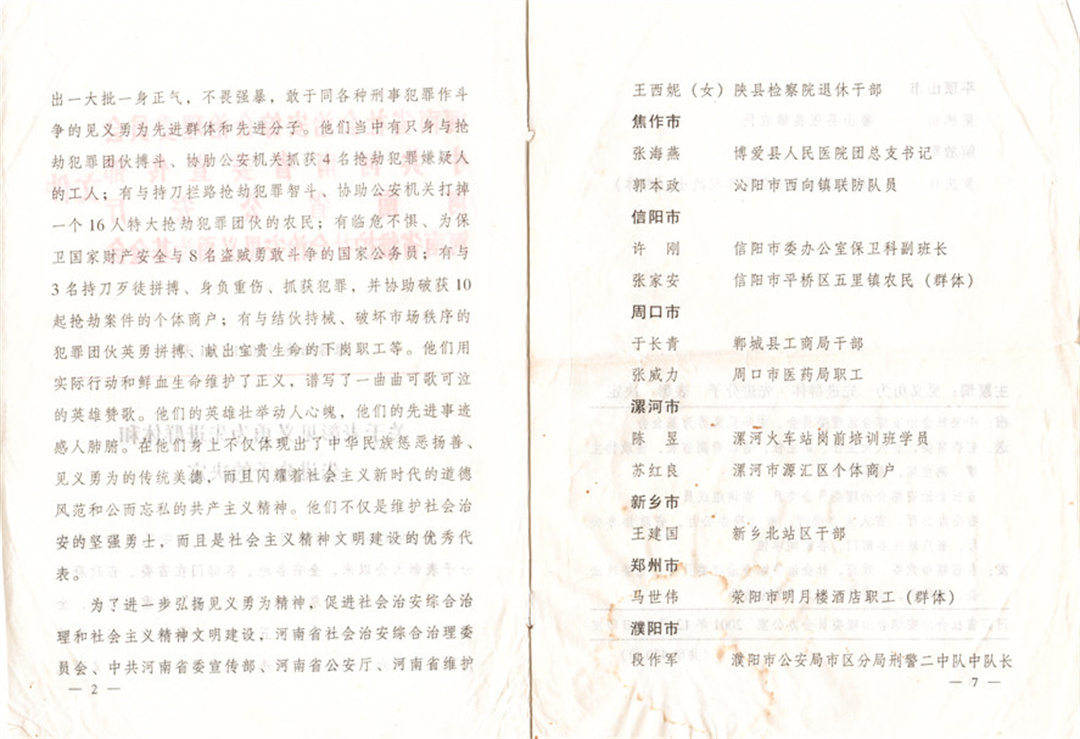 出一大批一身正气，不畏强暴，敢于同各种刑事犯罪作斗
争的见义勇为先进群体和先进分子。他们当中有只身与抢
劫犯罪团伙搏斗、协助公安机关抓获4名抢劫犯罪嫌疑人
的工人；有与持刀拦路抢劫犯罪智斗、协助公安机关打掉
一个16人特大抢劫犯罪团伙的农民；有临危不惧、为保
卫国家财产安全与8名盗贼勇敢斗争的国家公务员；有与
3名持刀歹徒拼搏、身负重伤、抓获犯罪，并协助破获10
起抢劫案件的个体商户；有与结伙持械、破坏市场秩序的
犯罪团伙英勇拼搏、献出宝贵生命的下岗职工等。他们用
实际行动和鲜血生命维护了正义，谱写了一曲曲可歌可泣
的英雄赞歌。他们的英雄壮举动人心魄，他们的先进事迹
感人肺腑。在他们身上不仅体现出了中华民族惩恶扬善、
见义勇为的传统美德，而且闪耀着社会主义新时代的道德
风范和公而忘私的共产主义精神。他们不仅是维护社会治
安的坚强勇士，而且是社会主义精神文明建设的优秀代
表。
为了进一步弘扬见义勇为精神，促进社会治安综合治
理和社会主义精神文明建设，河南省社会治安综合治理委
员会、中共河南省委宣传部、河南省公安厅、河南省维护
— 2 —
王西妮（女）陕县检察院退休干部
焦作市
张海燕 博爱县人民医院团总支书记
郭本政 沁阳市西向镇联防队员
信阳市
许 刚 信阳市委办公室保卫科副班长
张家安 信阳市平桥区五里镇农民（群体）
周口市
于长青 郸城县工商局干部
张威力 周口市医药局职工
漯河市
陈 昱 漯河火车站岗前培训班学员
苏红良 漯河市源汇区个体商户
新乡市
王建国 新乡北站区干部
郑州市
马世伟 荥阳市明月楼酒店职工（群体）
濮阳市
段作军 濮阳市公安局市区分局刑警二中队中队长
— 7 —